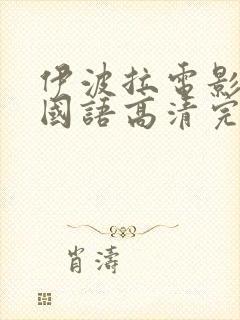 伊波拉電影
國語高清完
肖濤